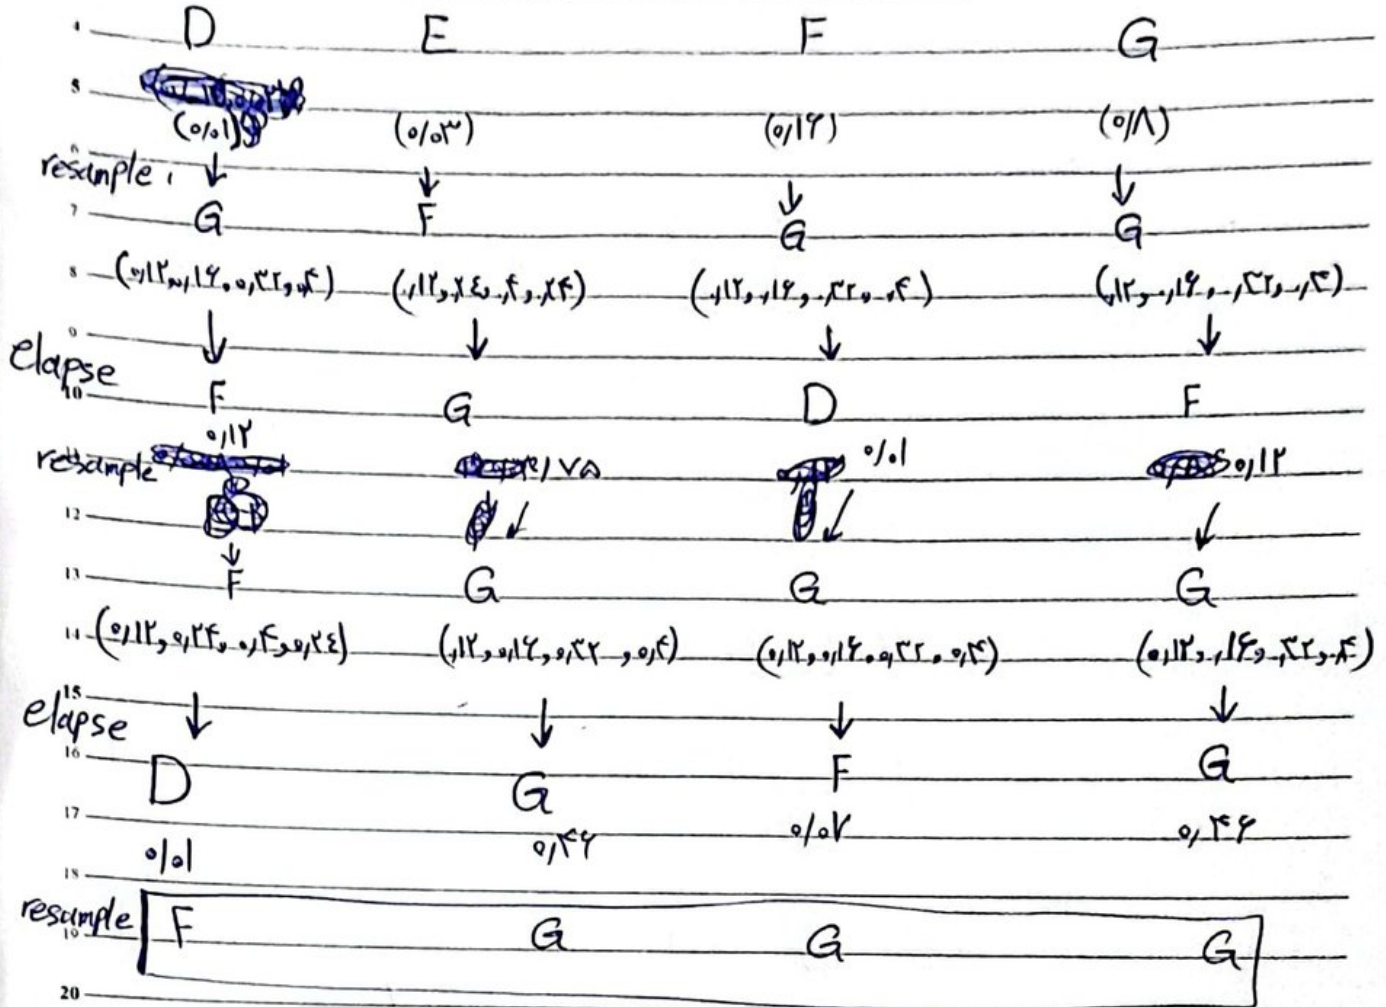 4 D E F G
5
(۰/۰۱) (۰/۰۳) (۰,۱۶) (۰,۸)
6
resample ↓ ↓ ↓ ↓
7 G F G G
8 (۰,۱۲,۰,۱۶,۰,۳۲,۰,۴) (.,۱۲,.۲٤,.۴,.۲۴) (.,۱۲,.,۱۶,.,۳۲,.,۴) (.,۱۲,.,۱۶,.,۳۲,.,۴)
9 ↓ ↓ ↓ ↓
elapse
10 F G D F
۰,۱۲
resample ۰/۷۵ ۰/۰۱ ۰,۱۲
12 ↓ ↓ ↓ ↓
13 F G G G
14 (۰,۱۲,۰,۲۴,۰,۴,۰,۲٤) (.,۱۲,۰,۱۶,۰,۳۲,۰,۴) (۰,۱۲,۰,۱۶,۰,۳۲,۰,۴) (۰,۱۲,.,۱۶,.۳۲,.۴)
15
elapse ↓ ↓ ↓ ↓
16 D G F G
17 ۰/۰۱ ۰,۴۶ ۰/۰۷ ۰,۴۶
18
resample F G G G
19
20